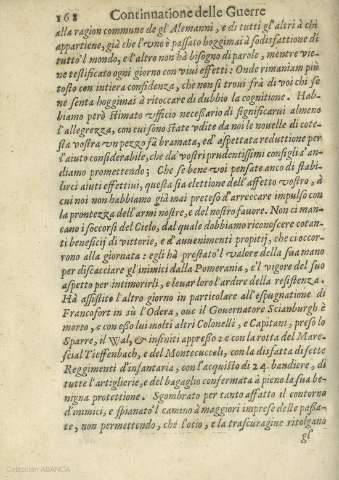 168 Continuatione delle Guerre
alla ragion commune de gl'Alemanni, e di tutti gl'altri à chi
appartiene, già che l'vno è passato hoggimai à sodisfattione di
tutto 'l mondo, e l'altro non hà bisogno di parole, mentre vie-
ne testificato ogni giorno con viui effetti: Onde rimaniam più
tosto con intiera confidenza, che non si troui frà di voi chi se
ne senta hoggimai à ritoccare di dubbio la cognitione. Hab-
biamo però stimato vfficio necessario di significarui almeno
l'allegrezza, con cui sono state vdite da noi le nouelle di cote-
sta vostra vn pezzo fà bramata, ed'aspettata reduttione per
l'aiuto considerabile, che da vostri prudentissimi consigli s'an-
deliamo promettendo; Che se bene voi pensate anco di stabi-
lirci aiuti effettiui, questa sia elettione dell'affetto vostro, à
cui noi non habbiamo già mai preteso d'arreccare impulso con
la prontezza dell'armi nostre, e del nostro fauore. Non ci man-
cano i soccorsi del Cielo, dal quale dobbiamo riconoscere cotan-
ti beneficij di vittorie, e d'auuenimenti propitij, che ci occor-
rono alla giornata: egli hà prestato 'l valore della sua mano
per discacciare gl'inimici dalla Pomerania, e 'l vigore del suo
aspetto per intimorirli, e leuar loro l'ardire della resistenza.
Hà assistito l'altro giorno in particolare all'espugnatione di
Francofort in sù l'Odera, oue il Gouernatore Scianburgh è
morto, e con esso lui molti altri Colonelli, e Capitani, preso lo
Sparre, il Wal, & infiniti appresso: e con la rotta del Mare-
scial Tieffenbach, e del Montecuccoli, con la disfatta di sette
Reggimenti d'infantaria, con l'acquisto di 24. bandiere, di
tutte l'artiglierie, e del bagaglio confermata à pieno la sua be-
nigna protettione. Sgombrato per tanto affatto il contorno
d'inimici, e spianato 'l camino à maggiori imprese delle passa-
te, non permettendo, che l'otio, e la trascuragine ritolgano
gl'
Colección ABANCA